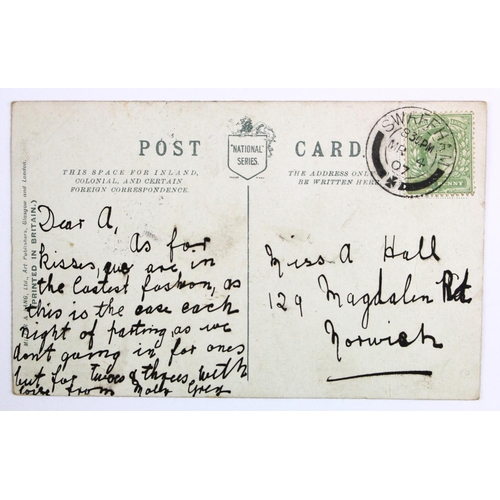 POST CARD
"NATIONAL"
SERIES.
THIS SPACE FOR INLAND,
COLONIAL, AND CERTAIN
FOREIGN CORRESPONDENCE.
THE ADDRESS ONLY
BE WRITTEN HERE
SWAFFHAM
9.30AM
MR
07
PENNY
LTD., Art Publishers, Glasgow and London.
(PRINTED IN BRITAIN.)
Dear A,
As for
kisses, we are, in
the lastest fashion, as
this is the case each
night of parting, as we
don't going in for ones
but for twoes & threes, with
love from Molly Grey
Miss A Hall
129 Magdalen Rd
Norwich